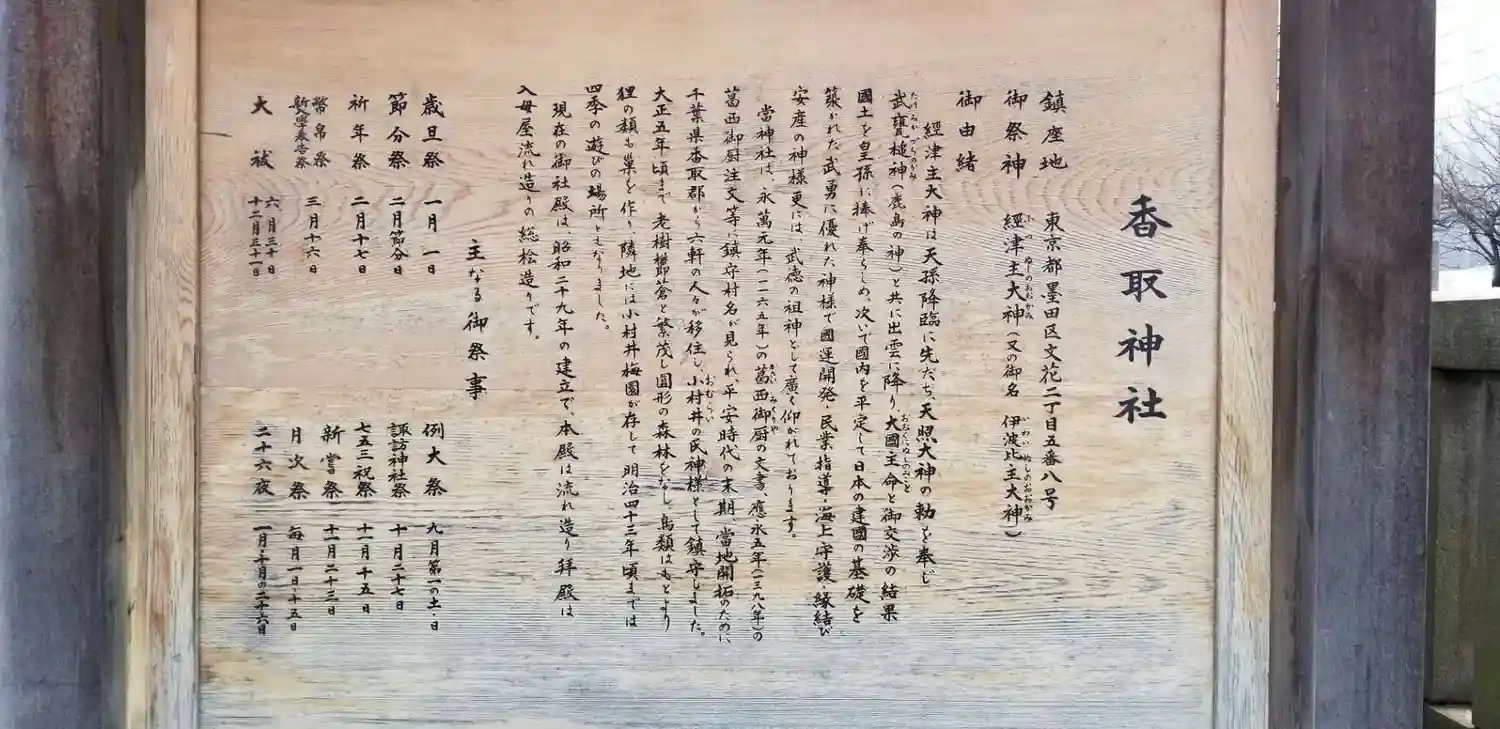 香取神社
鎮座地 東京都墨田区文花二丁目五番八号
御祭神 經津主大神(又の御名 伊波比主大神)
御由緒
經津主大神は天孫降臨に先だち、天照大神の勅を奉じ
武甕槌神(鹿島の神)と共に出雲に降り、大國主命と御交渉の結果
國土を皇孫に捧げ奉らしめ、次いで國内を平定して日本の建國の基礎を
築かれた武勇に優れた神様で國運開発・民業指導・海上守護・縁結び
安産の神様更には、武徳の祖神として廣く仰がれております。
當神社は、永萬元年(一一六五年)の葛西御厨の文書、應永五年(一三九八年)の
葛西御厨注文等に鎮守村名が見られ、平安時代の末期、當地開拓のために
千葉県香取郡から六軒の人々が移住し、小村井の氏神様として鎮守しました。
大正五年頃まで老樹欝蒼と繁茂し圓形の森林をなし、鳥類はもとより
狸の類も巣を作り、隣地には小村井梅園が存して明治四十三年頃までは
四季の遊びの場所ともなりました。
現在の御社殿は、昭和二十九年の建立で、本殿は流れ造り拜殿は
入母屋流れ造りの総桧造りです。
主なる御祭事
歳旦祭 一月一日
節分祭 二月節分日
祈年祭 二月十七日
幣帛祭
新入學奉告祭 三月十六日
大祓 六月三十日
十二月三十一日
例大祭 九月第一の土・日
諏訪神社祭 十月二十七日
七五三祝祭 十一月十五日
新嘗祭 十一月二十三日
月次祭 毎月一日・十五日
二十六夜 一月・十月の二十六日